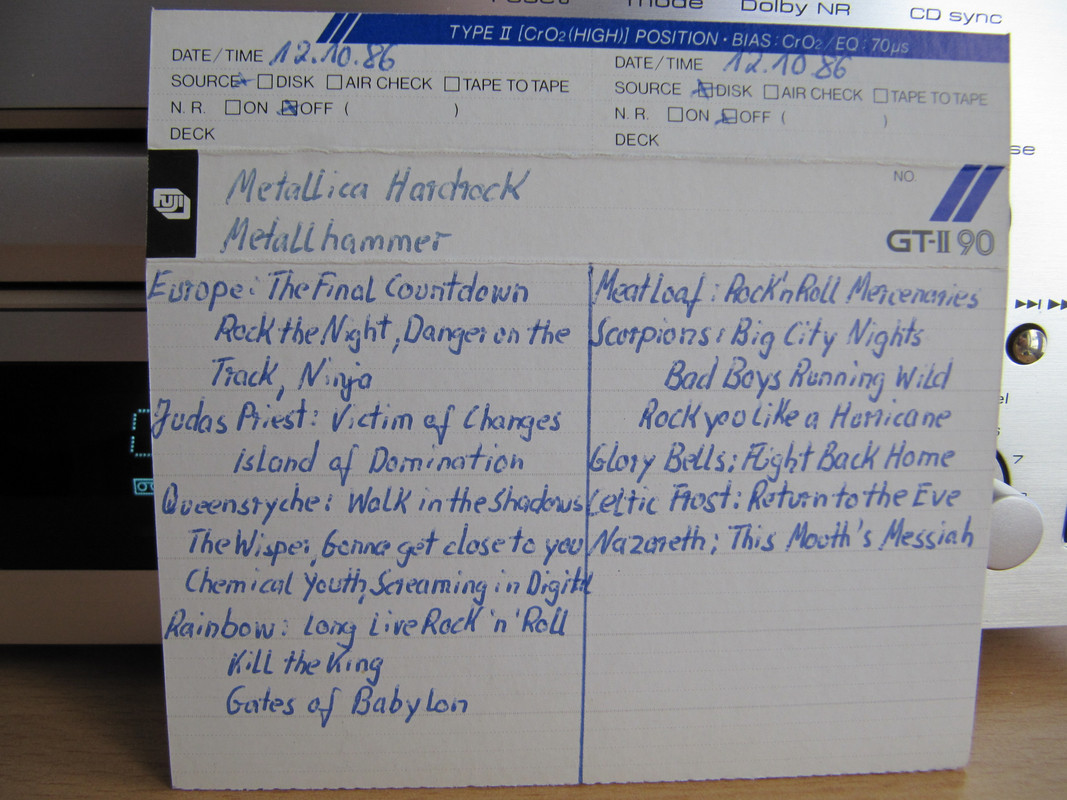 mode
Dolby NR
CD sync
TYPE II [CrO₂(HIGH)] POSITION · BIAS : CrO₂/EQ : 70μs
DATE/TIME 12.10.86
SOURCE DISK AIR CHECK TAPE TO TAPE
N. R. ON OFF ( )
DECK
DATE/TIME 12.10 86
SOURCE DISK AIR CHECK TAPE TO TAPE
N. R. ON OFF ( )
DECK
FUJI
Metallica Hardrock
Metallhammer
NO.
GT-II 90
Europe: The Final Countdown
Rock the Night, Danger on the
Track, Ninja
Judas Priest: Victim of Changes
island of Domination
Queensryche: Walk in the Shadows
The Wisper, Gonna get close to you
Chemical Youth, Screaming in Digital
Rainbow: Long Live Rock 'n' Roll
Kill the King
Gates of Babylon
Meat Loaf: Rock'n Roll Mercenaries
Scorpions: Big City Nights
Bad Boys Running Wild
Rock you Like a Hurricane
Glory Bells: Fight Back Home
Celtic Frost: Return to the Eve
Nazareth: This Mooth's Messiah
7